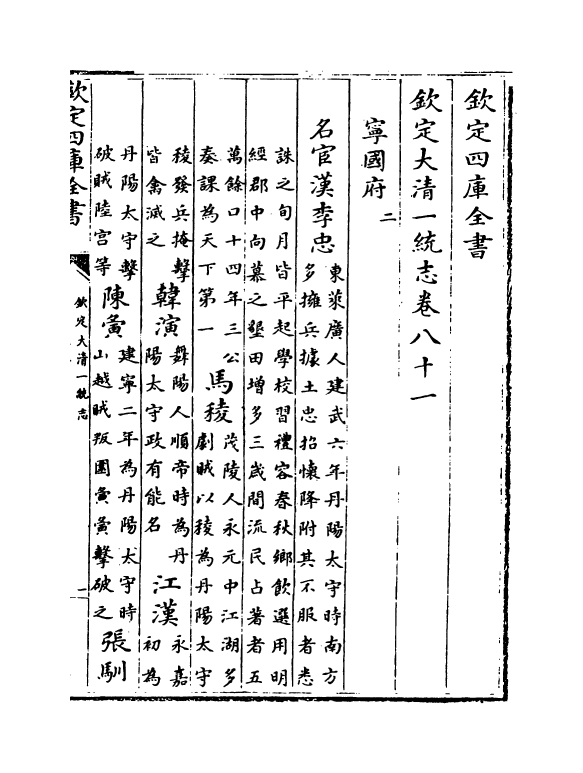 欽定四庫全書
欽定大清一統志卷八十一
寧國府二
名宦漢李忠
東萊廣人建武六年丹陽太守時南方
多擁兵據土忠招懷降附其不服者悉
誅之旬月皆平起學校習禮容春秋鄉飲選用明
經郡中向慕之墾田增多三歲間流民占著者五
萬餘口十四年三公
奏課為天下第一
馬稜
茂陵人永元中江湖多
劇賊以稜為丹陽太守
稜發兵掩擊
皆禽滅之
韓演
舞陽人順帝時為丹
陽太守政有能名
江漢
永嘉
初為
丹陽太守擊
破賊陸宫等
陳夤
建寧二年為丹陽太守時
山越賊叛圍夤夤擊破之
張馴
欽定四庫全書
欽定大清一統志
一